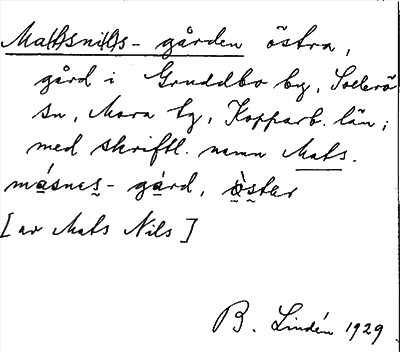 Mat(t)sni(l)s - gården östra,
gård i Gruddbo by, Sollerö
sn, Mora tg, Kopparb. län;
med skriftl. namn Mats.
másnes - gárd, òster
[av Mats Nils]
B. Lindén 1929